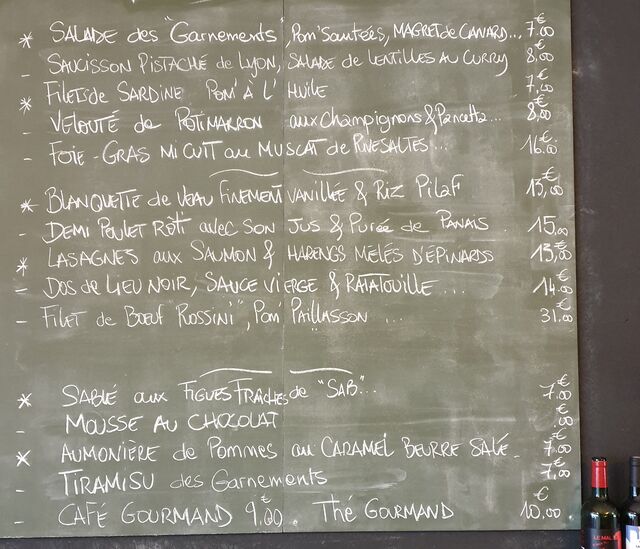 * SALADE des "Garnements", Pom' Sautées, MAGRET de CANARD... 7.00€
- SAUCISSON PISTACHE de LYON, SALADE de LENTILLES AU CURRY 8,00€
* Filets de SARDINE Pom' à L'HUILE 7,00€
- VELOUTÉ de POTIMARRON aux Champignons & Pancetta... 8,00€
- FOIE-GRAS MI CUIT au MUSCAT de RIVESALTES... 16.00€
* BLANQUETTE de VEAU FINEMENT VANILLÉE & RIZ PILAF 13,00€
- DEMI POULET RÔTI avec SON JUS & PURÉE de PANAIS. 15,00€
* LASAGNES aux SAUMON & HARENGS MÊLÉS D'ÉPINARDS 13,00€
- DOS de LIEU NOIR, SAUCE VIERGE & RATATOUILLE... 14.00€
- FILET de BOEUF ROSSINI", POM' PAILLASSON... 31.00€
* SABLÉ aux FIGUES FRAÎCHES de "SAB"... 7.00€
- MOUSSE AU CHOCOLAT .00€
* AUMONIÈRE de Pommes au CARAMEL BEURRE SALÉ 7.00€
- TIRAMISU des Garnements 7,00€
- CAFÉ GOURMAND 9.00€. Thé GOURMAND 10.00€